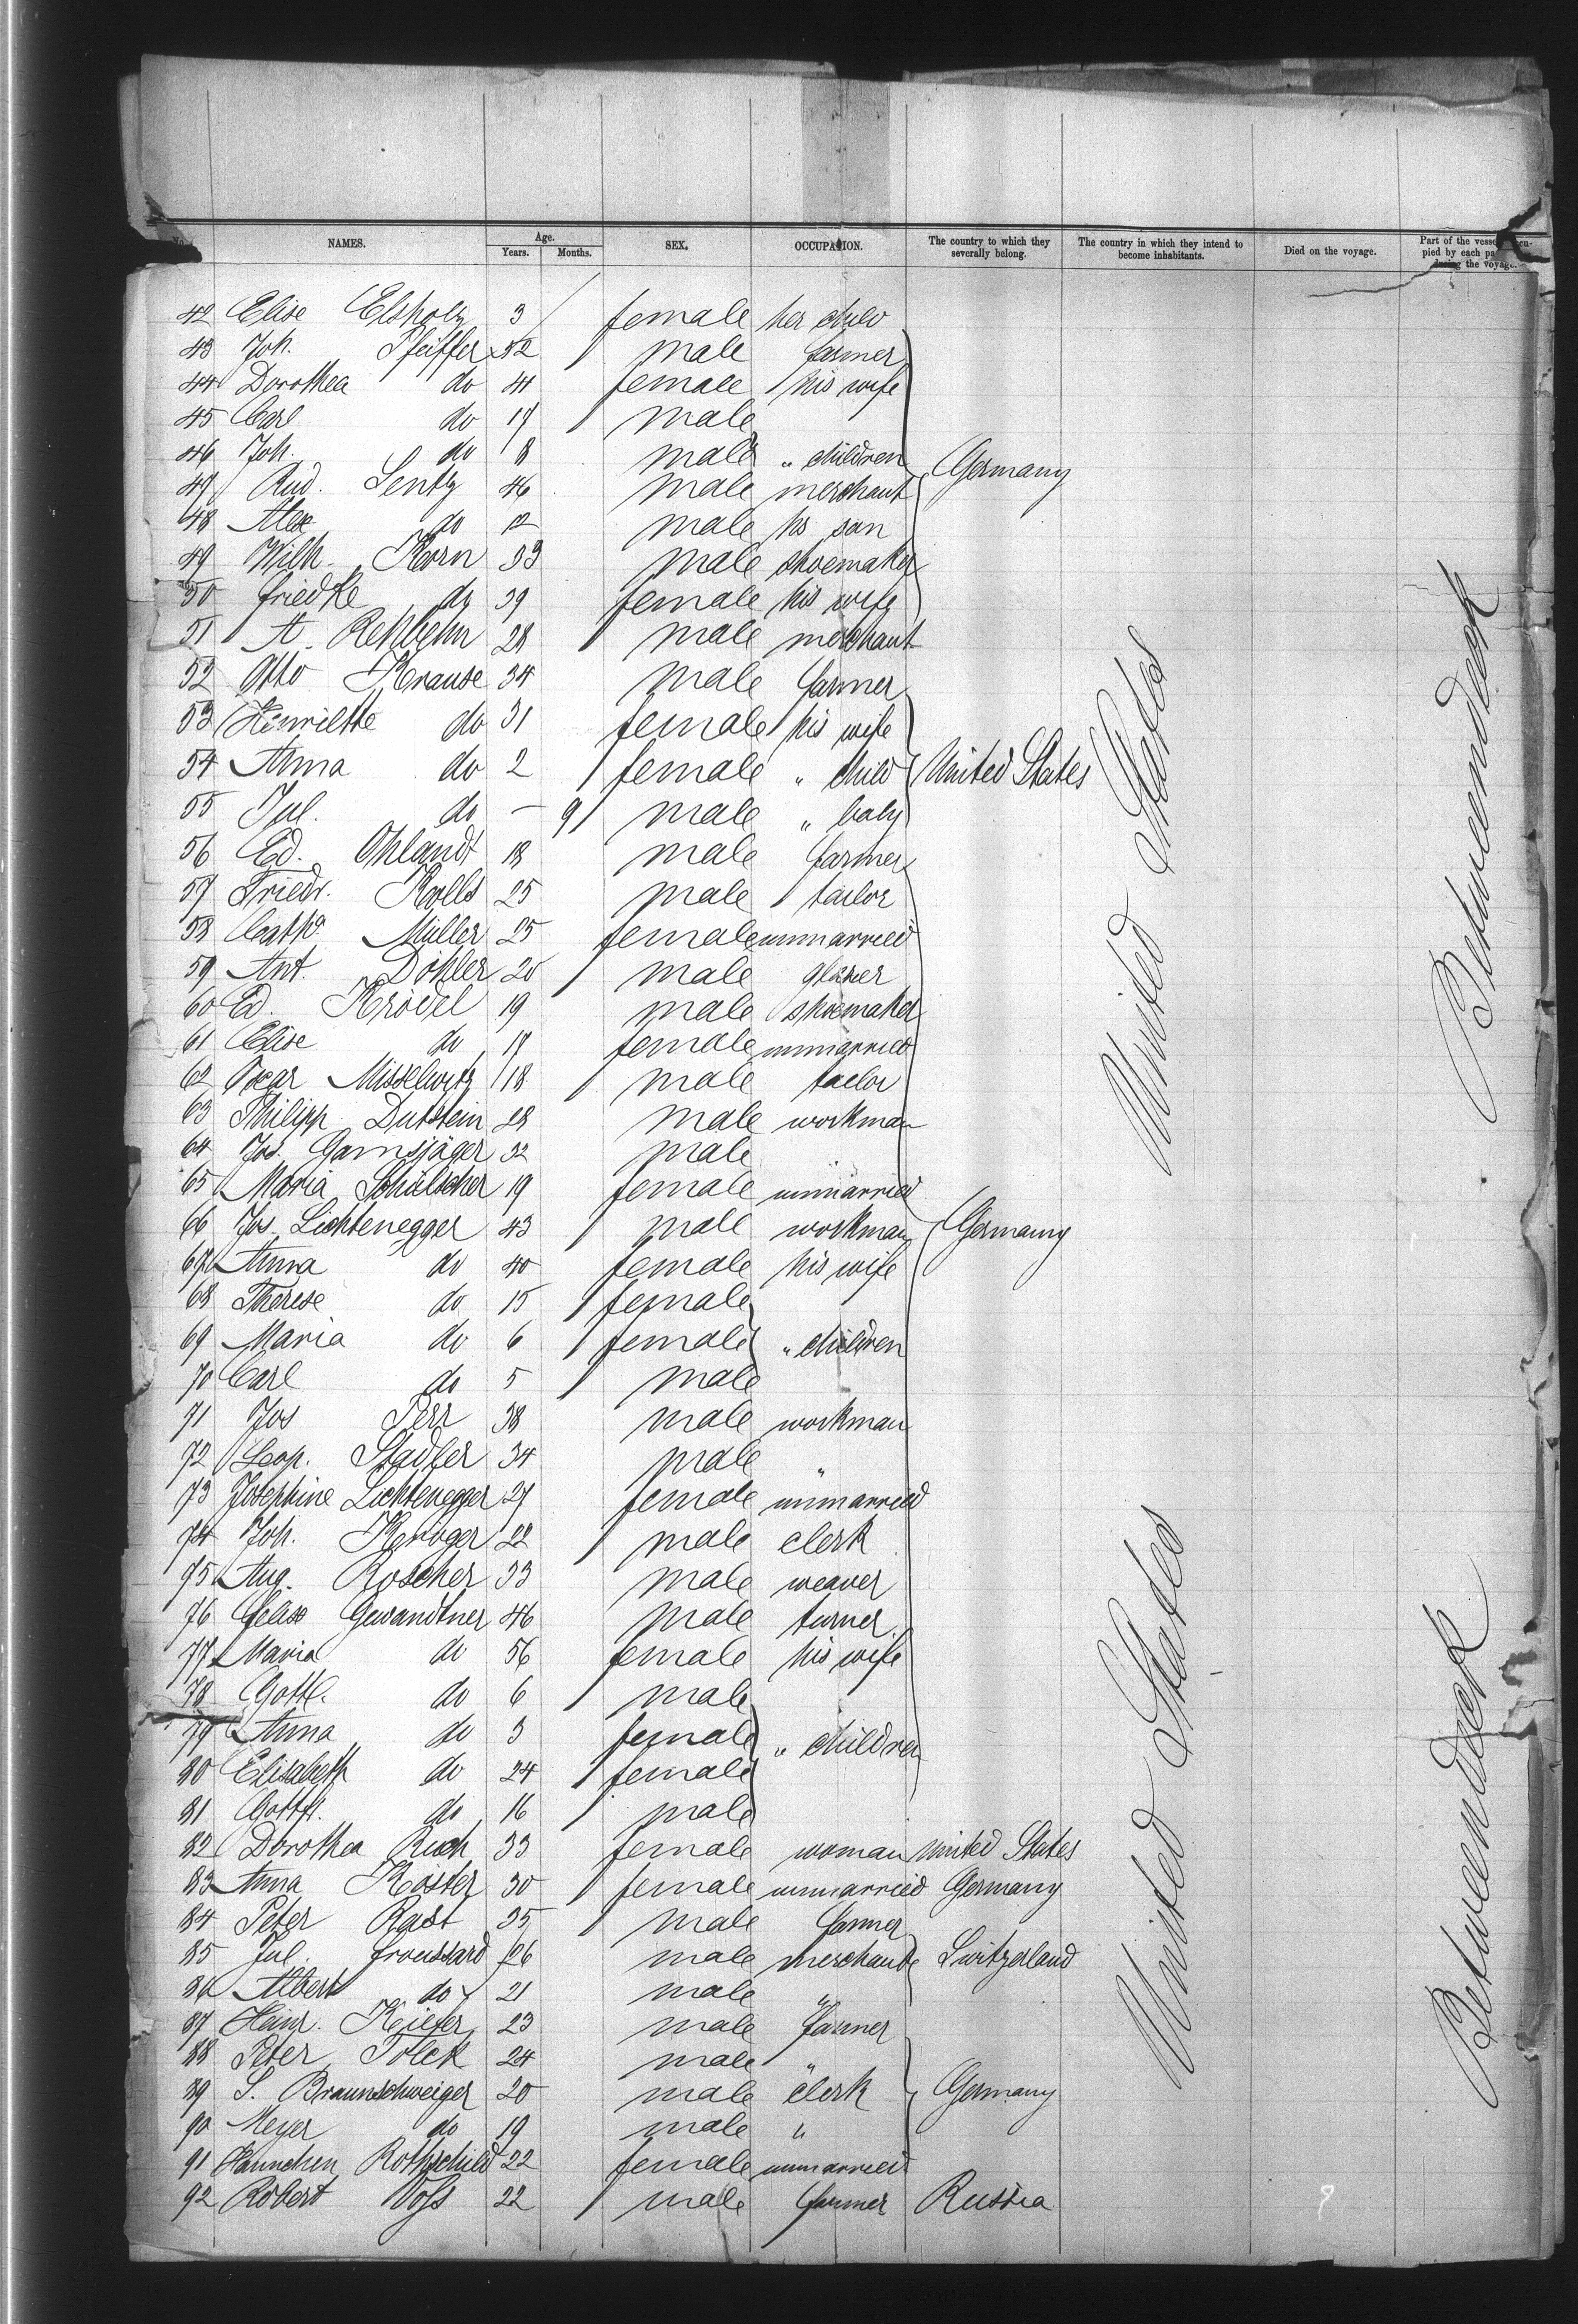 No. NAMES. Age. Years. Months. SEX. OCCUPATION. The country to which they severally belong. The country in which they intend to become inhabitants. Died on the voyage. Part of the vessel occupied by each during the voyage.
42 Elise Elsholz 3 female her child
43 Joh. Pfeiffer 52 male farmer
44 Dorothea do 41 female his wife
45 Carl do 17 male
46 Joh. do 8 male " children Germany
47 Rud. Lentz 46 male merchant
48 Alex do 12 male his son
49 Wilh. Korn 33 male shoemaker
50 Friedke do 39 female his wife
51 A. Rehbehn 28 male merchant
52 Otto Krause 34 male farmer
53 Henriette do 31 female his wife
54 Anna do 2 female " child United States
55 Jul. do — 9 male " baby
56 Ed. Ohlandt 18 male farmer
57 Friedr. Rolls 25 male tailor
58 Catha Müller 25 female unmarried
59 Ant. Döhler 20 male glazier
60 Ed. Krödel 19 male shoemaker
61 Elise do 17 female unmarried
62 Oscar Misselwitz 18 male tailor
63 Philipp Dutstein 28 male workman
64 Jos. Gamsjäger 32 male
65 Maria Schülscher 19 female unmarried
66 Jos. Lichtenegger 43 male workman Germany
67 Anna do 40 female his wife
68 Therese do 15 female
69 Maria do 6 female " children
70 Carl do 5 male
71 Jos Perr 38 male workman
72 Leop. Stadler 34 male "
73 Josephine Lichtenegger 27 female unmarried
74 Joh. Kroger 22 male clerk
75 Aug. Roscher 33 male weaver
76 Felix Gewandtner 46 male turner
77 Maria do 56 female his wife
78 Gottl. do 6 male
79 Anna do 3 female " children
80 Elisabeth do 24 female
81 Gottfr. do 16 male
82 Dorothea Ruch 33 female woman United States
83 Anna Köster 30 female unmarried Germany
84 Peter Rast 35 male farmer
85 Jul. Froussard 26 male merchant Switzerland
86 Albert do 21 male "
87 Heinr. Kiefer 23 male farmer
88 Peter Tolck 24 male "
89 S. Braunschweiger 20 male clerk Germany
90 Meyer do 19 male "
91 Hannchen Rothschild 22 female unmarried
92 Robert Voss 22 male farmer Russia
United States
United States
Betweendeck
Betweendeck
9